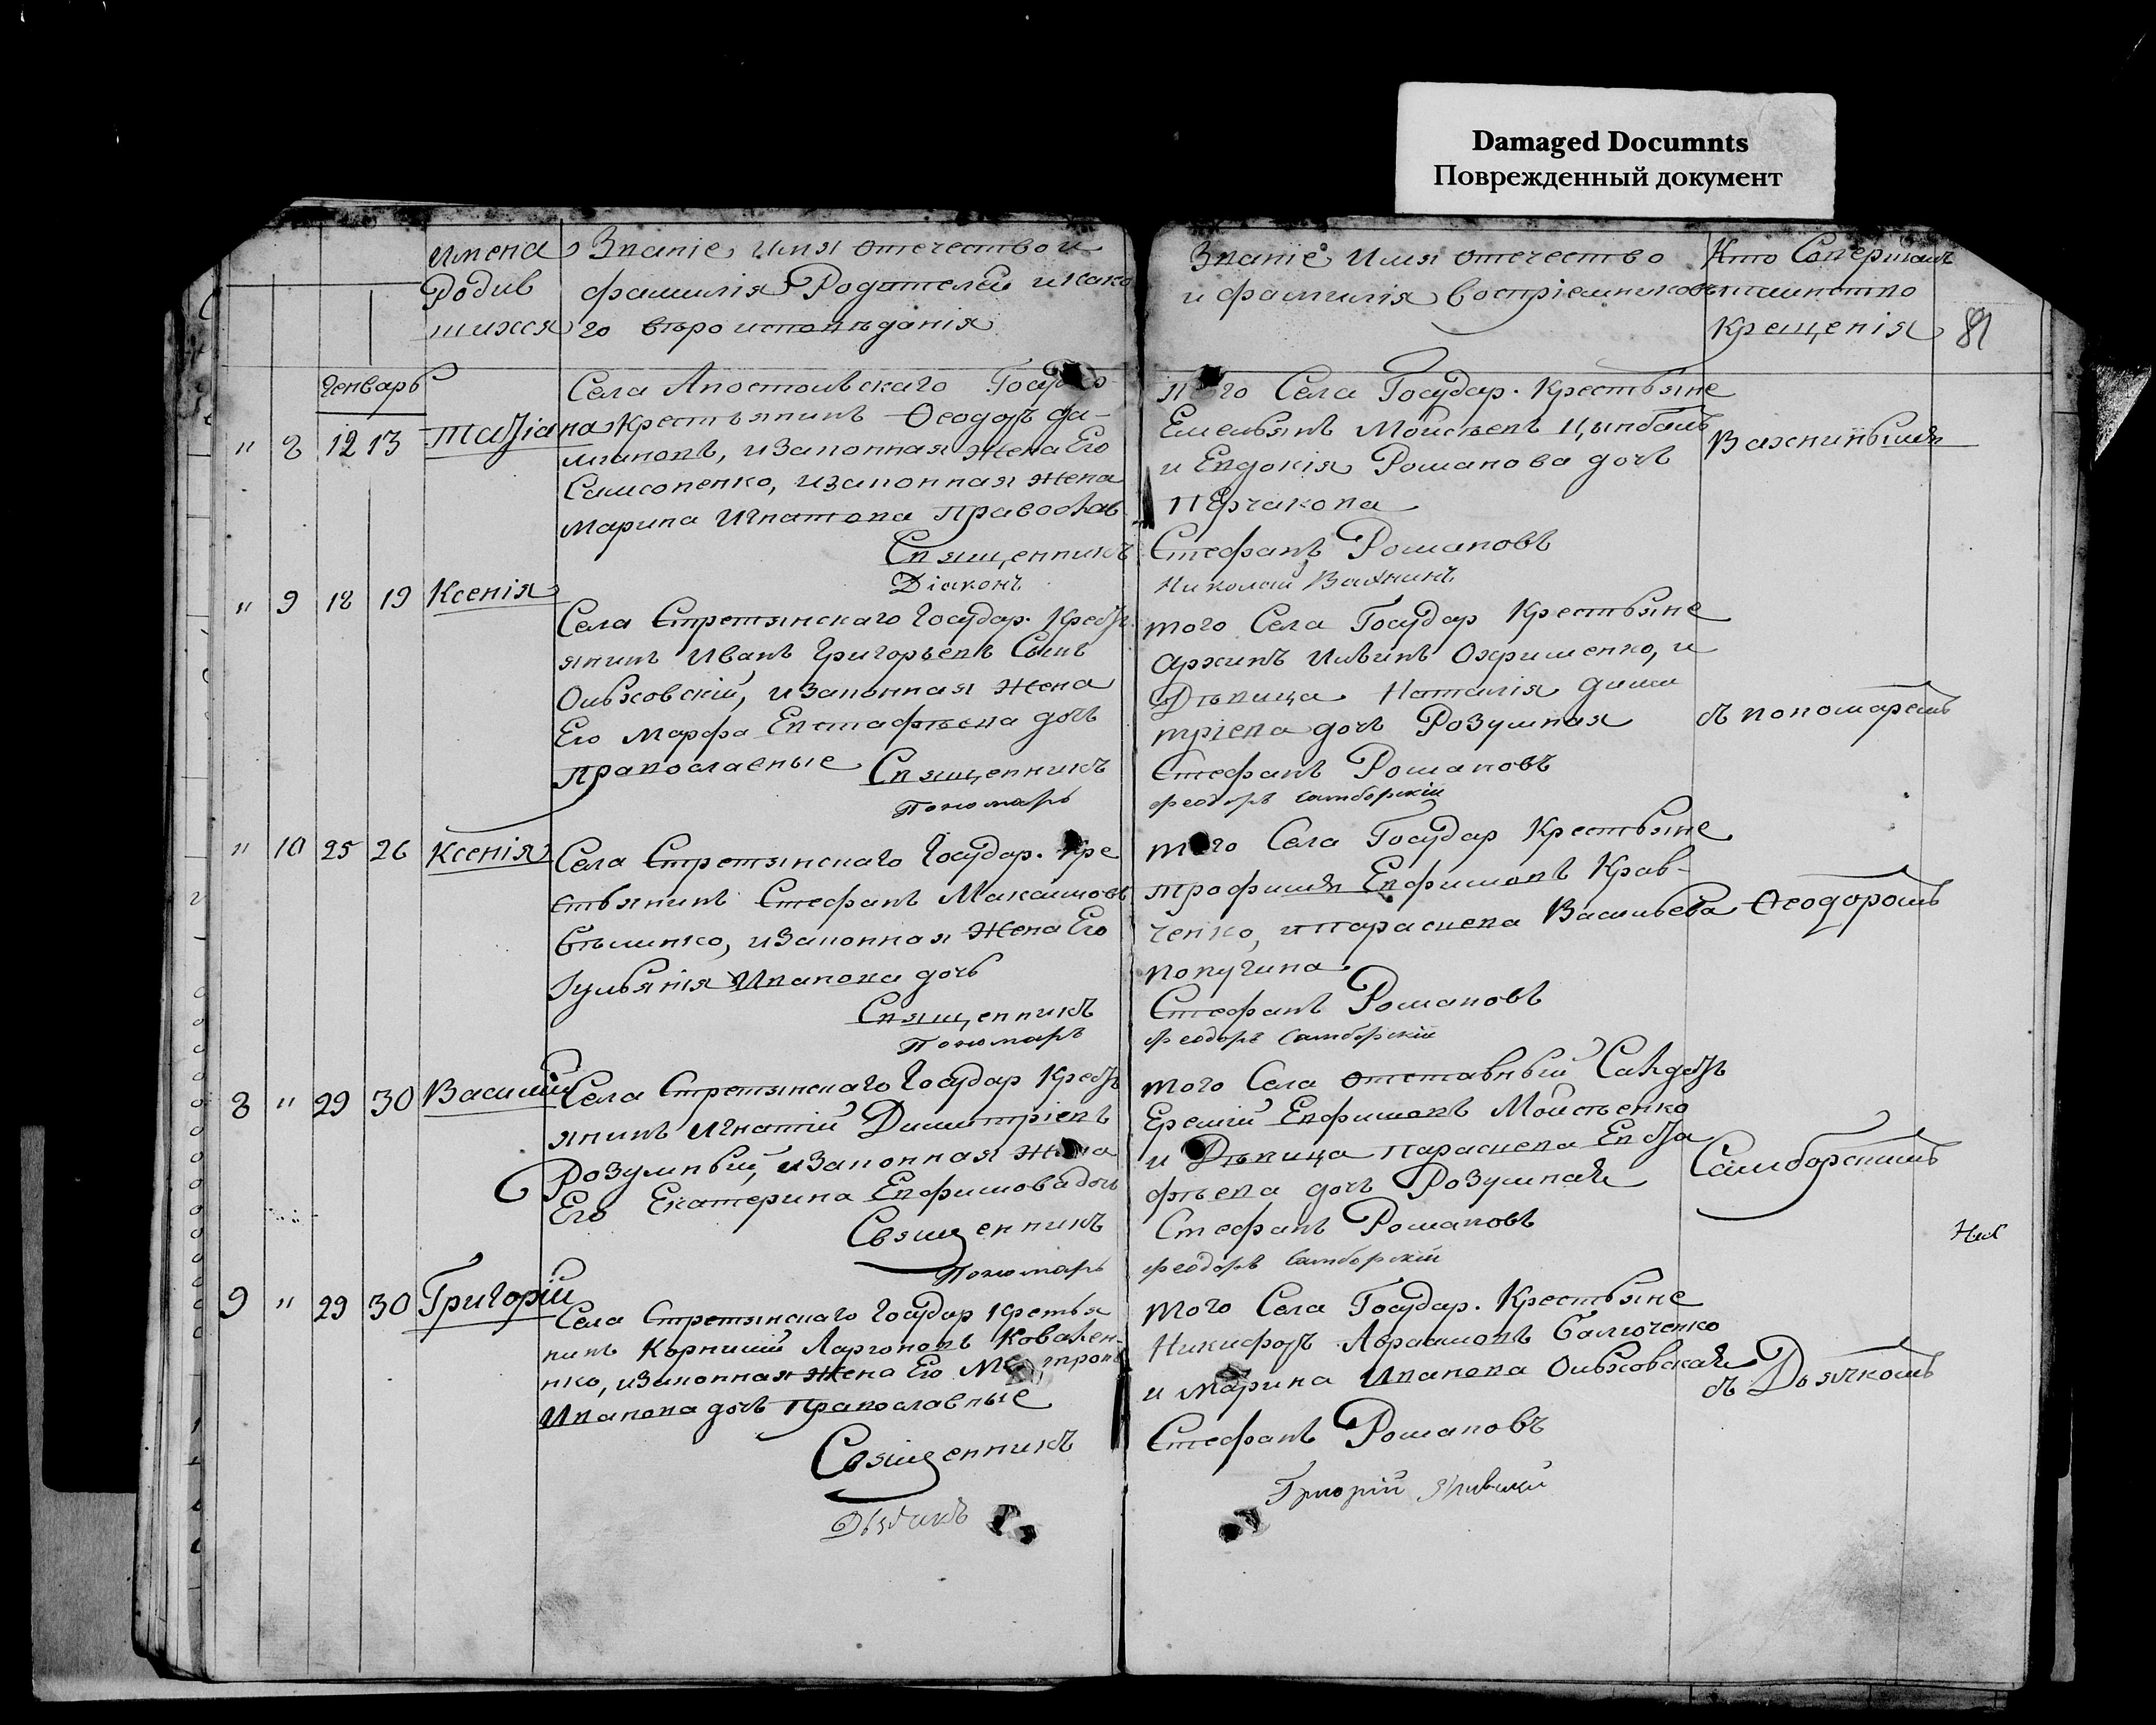 Damaged Documnts
Поврежденный документ
имена
Родив
шихся
Званіе, имя отечество и
фамилія Родителей и како
го вѣро исповѣданія
Званіе имя отечество
и фамилія воспріемниковъ
Кто Совершалъ
таинство
крещенія
81
Генварь
" 8 12 13 Татіана
Села Апостольскаго Государ
Крестьянинъ Ѳеодоръ Да-
міановъ, и законная жена Его
Самсоненко, и законная жена
Марина Игнатова Православ
Священникъ
Діаконъ
того Села Государ. Крестьяне
Емельянъ Моисѣевъ Цымбалъ
и Евдокія Романова дочь
Стефанъ Романовъ
Николай Вахнинъ
" 9 18 19 Ксенія
Села Стретинскаго Государ. Крест
янинъ Иванъ Григорьевъ Сынъ
Ольховскій, и законная жена
Его Марфа Евстафѣева дочь
православные Священникъ
Пономарь
того Села Государ Крестьяне
Архипъ Ильинъ Охрименко, и
Дѣвица Наталія Дими
тріева дочь Розумная
Стефанъ Романовъ
Феодоръ Самборскій
съ пономаремъ
" 10 25 26 Ксенія
Села Стретинскаго Государ. Кре
стьянинъ Стефанъ Максимовъ
и законная жена Его
Іульянія Иванова дочь
Священникъ
Пономарь
того Села Государ Крестьяне
Трофимъ Евфимовъ Крав-
ченко, и Парасцева Васильева
Стефанъ Романовъ
Феодоръ Самборскій
Ѳеодоромъ
8 " 29 30 Василій
Села Стретинскаго Государ Крест
янинъ Игнатій Димитріевъ
Розумный, и законная жена
Его Екатерина Евфимова дочь
Священникъ
Пономарь
того Села отставный Салдатъ
Еремій Евфимовъ Моисѣенко
и Дѣвица Парасцева Евста
фѣева дочь Розумная
Стефанъ Романовъ
Феодоръ Самборскій
Самборскимъ
9 " 29 30 Григорій
Села Стретинскаго Государ Крестья
нинъ Корнилій Ларіоновъ Ковален-
нко, и законная жена Его
Иванова дочь Православные
Священникъ
Дьячокъ
того Села Государ. Крестьяне
Никифоръ Авраамовъ
и Марина Иванова Ольховская
Стефанъ Романовъ
Григорій
съ Дьячкомъ